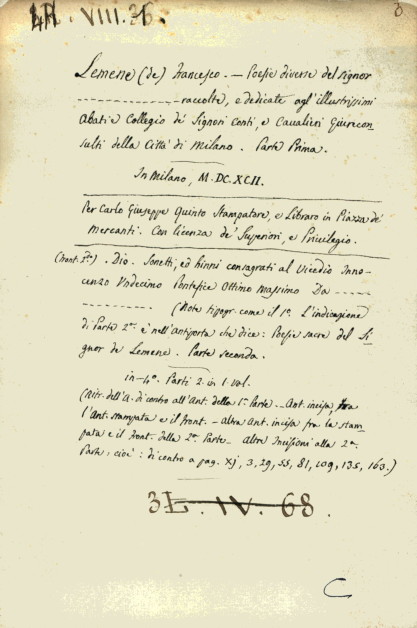 4A. VIII. 36.
3
Lemene (de) Francesco. — Poesie diverse del Signor
- - - - - - - - - - - - - raccolte, e dedicate agl'illustrissimi
Abati e Collegio de' Signori Conti, e Cavalieri Giurecon-
sulti della Città di Milano. Parte Prima.
In Milano, M.DC.XCII.
Per Carlo Giuseppe Quinto Stampatore, e Libraro in Piazza de'
Mercanti. Con licenza de' Superiori, e Privilegio.
(Front. 2°.) Dio. Sonetti, ed hinni consagrati al Vicedio Inno-
cenzo Undecimo Pontefice Ottimo Massimo Da - - - - -
- - - - - - - - - . (Note tipogr. come il 1°. L'indicazione
di Parte 2ª. è nell'Antiporta che dice: Poesie sacre del Si-
gnor de Lemene. Parte seconda.
in-4°. Parti 2. in 1. vol.
(Ritr. dell'A. di contro all'Ant. della 1ª. Parte. — Ant. incisa, fra
l'Ant. stampata e il front. — altra Ant. incisa fra la stam-
pata e il front. della 2ª. Parte — Altre Incisioni alla 2ª.
Parte, cioè: di contro a pag. XJ, 3, 29, 55, 81, 109, 135, 163.)
3E. IV. 68.
C